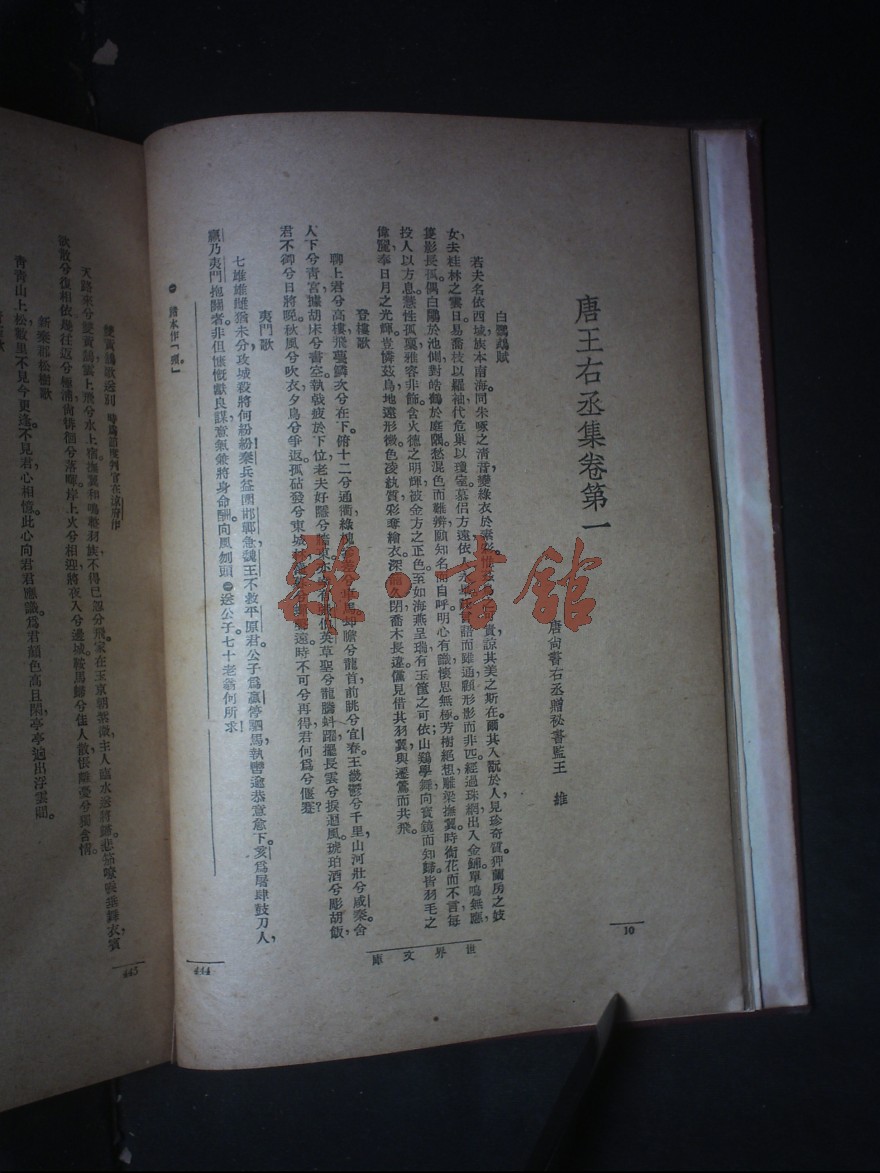 唐王右丞集卷第一
唐尚書右丞贈祕書監王 維
白鸚鵡賦
若夫名依西域族本南海同朱喙之清音變綠衣於素
貴諒其美之斯在爾其入翫於人見珍奇質狎蘭房之妓
女去桂林之雲日易喬枝以羅袖代危巢以瓊室慕侶方遠依人
語而雖通顧形影而非匹經過珠網出入金鋪單鳴無應
隻影長孤偶白鷳於池側對皓鶴於庭隅愁混色而難辨願知名而自呼明心有識懷思無極芳樹絕想雕梁撫翼時銜花而不言每
投人以方息慧性孤稟雅容非飾含火德之明輝被金方之正色至如海燕呈瑞有玉筐之可依山鷄學舞向寶鏡而知歸皆羽毛之
偉麗奉日月之光輝豈憐茲鳥地遠形微色凌紈質彩奪繪衣深籠久閉喬木長違儻見借其羽翼與遷鶯而共飛。
登樓歌
聊上君兮高樓飛甍鱗次兮在下。俯十二兮通衢綠槐
車馬却瞻兮龍首前眺兮宜春。王畿鬱兮千里山河壯兮咸秦。舍
人下兮青宮據胡牀兮書空。執戟疲於下位老夫好隱兮牆東。
英草聖兮龍騰虯躍擺長雲兮捩迴風。琥珀酒兮彫胡飯,
君不御兮日將晚。秋風兮吹衣夕鳥兮爭返。孤砧發兮東城
遠時不可兮再得君何爲兮偃蹇?
夷門歌
七雄雄雌猶未分攻城殺將何紛紛秦兵益圍邯鄲急魏王不救平原君。公子爲嬴停駟馬執轡逾恭意愈下。亥爲屠肆鼓刀人,
嬴乃夷門抱關者。非但慷慨獻良謀意氣兼將身命酬。向風刎頭㊀送公子七十老翁何所求!
世界文庫
10
444
雙黃鵠歌送別
天路來兮雙黃鵠雲上飛兮水上宿。撫翼和鳴整羽族不得已忽分飛家在玉京朝紫微主人臨水送將歸
舞衣賓
欲散兮復相依幾往返兮極浦尙徘徊兮落暉岸上火兮相迎將夜入兮邊城鞍馬歸兮佳人散悵離憂兮獨含情。
新秦郡松樹歌
青青山上松數里不見今更逢。不見君心相憶此心向君君應識爲君顏色高且閑亭亭迥出浮雲間。
445